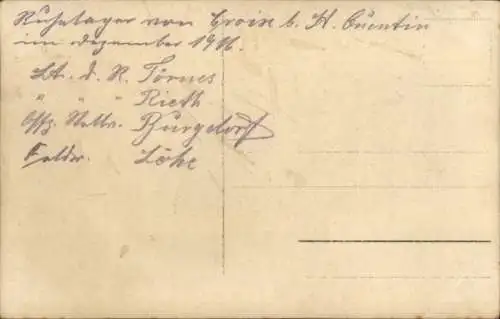 Ruhelager von Croix b. St. Quentin
im Dezember 1916.
Lt. d. R. Törnes
" " " Rieth
Offz. Stellv. Burgdorf
Feldw. Löhe